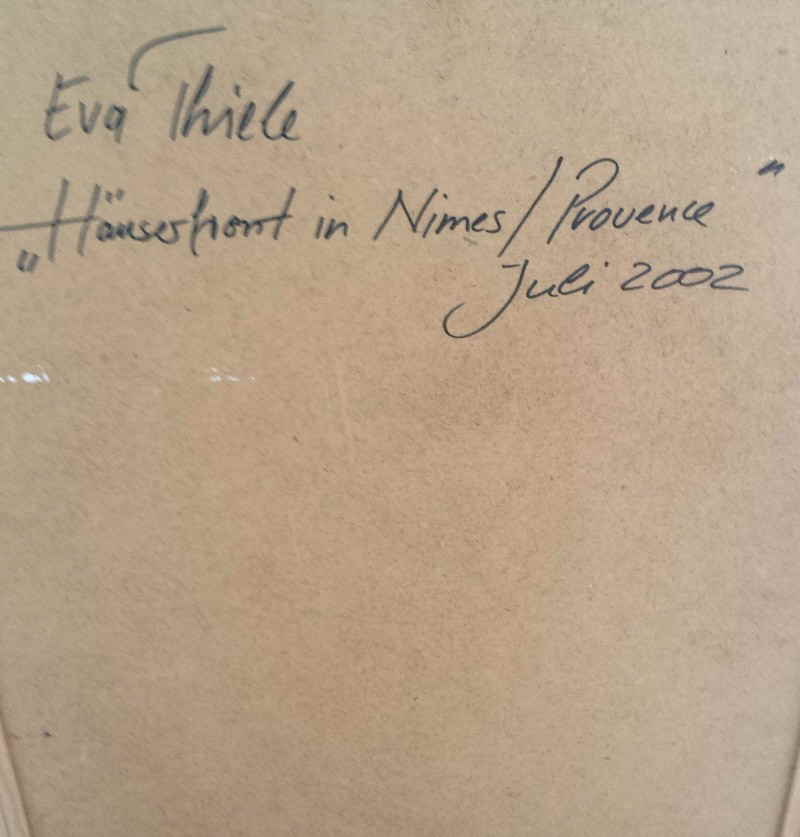 Eva Thiele
„Häuserfront in Nimes/Provence"
Juli 2002